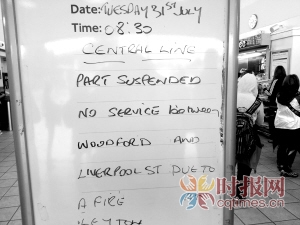 Date: TUESDAY 31ST JULY
Time: 08:30
CENTRAL LINE
PART SUSPENDED
NO SERVICE between
WOODFORD AND
LIVERPOOL ST DUE TO
A FIRE
LEYTON
时报网
cqtimes.cn